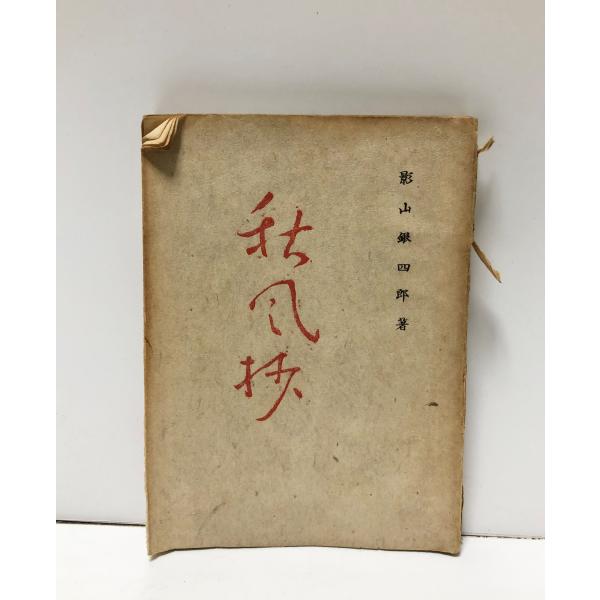 影山銀四郎著
秋風抄